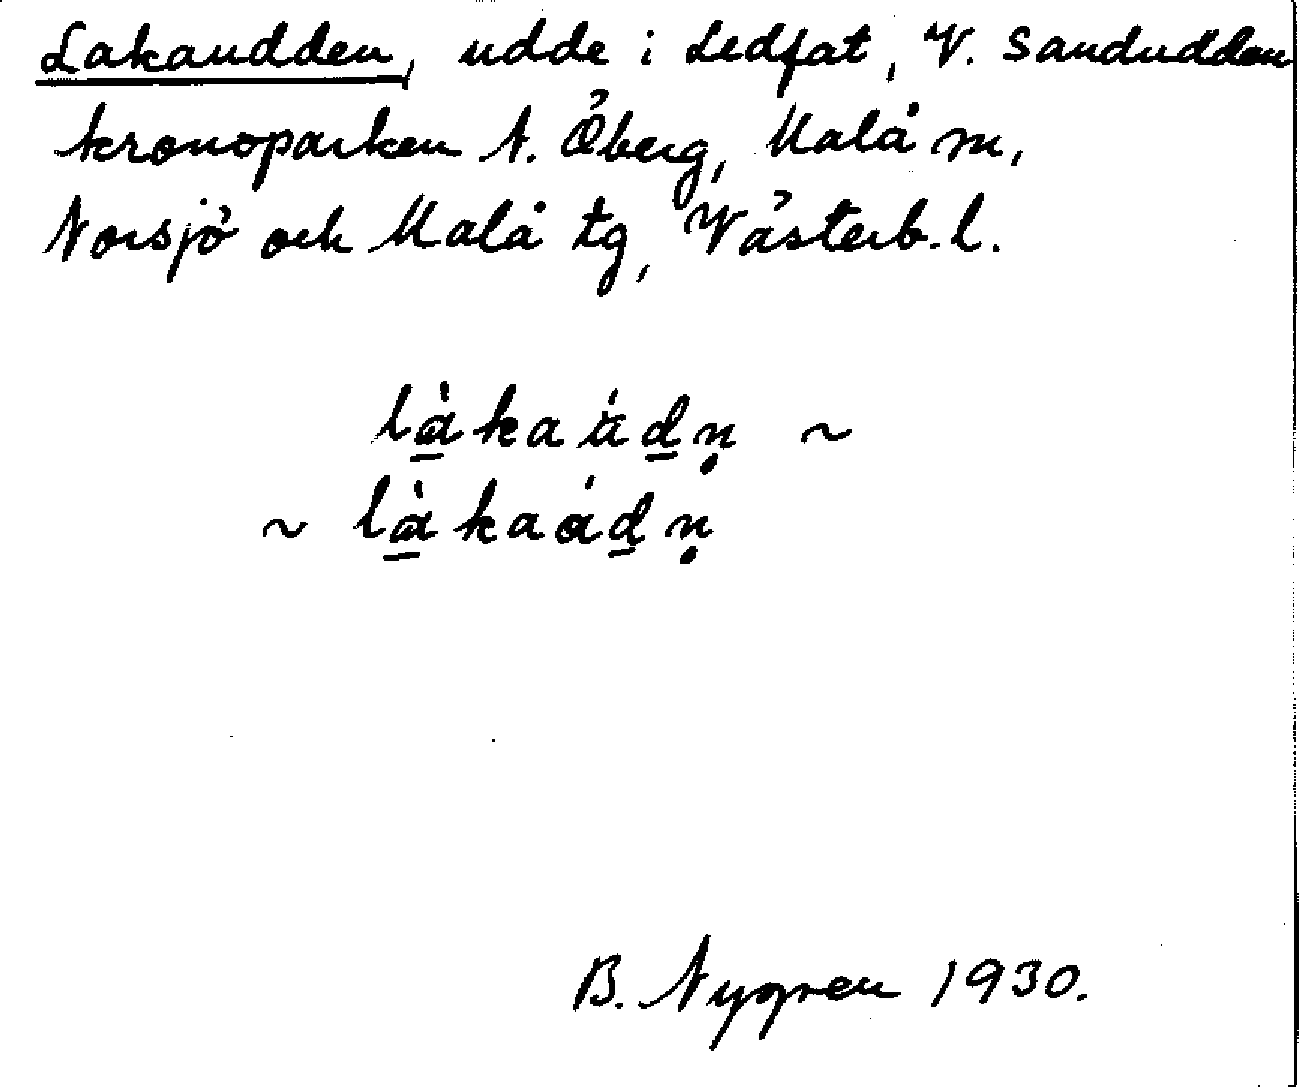 Lakaudden, udde i Ledfat, V. Sandudden
kronoparken N. Öberg, Malå m,
Norsjö och Malå tg, Västerb. l.
lɑ̀kaádn̥ ~
~ lɑ̀kaɑ́dn̥
B. Nygren 1930.